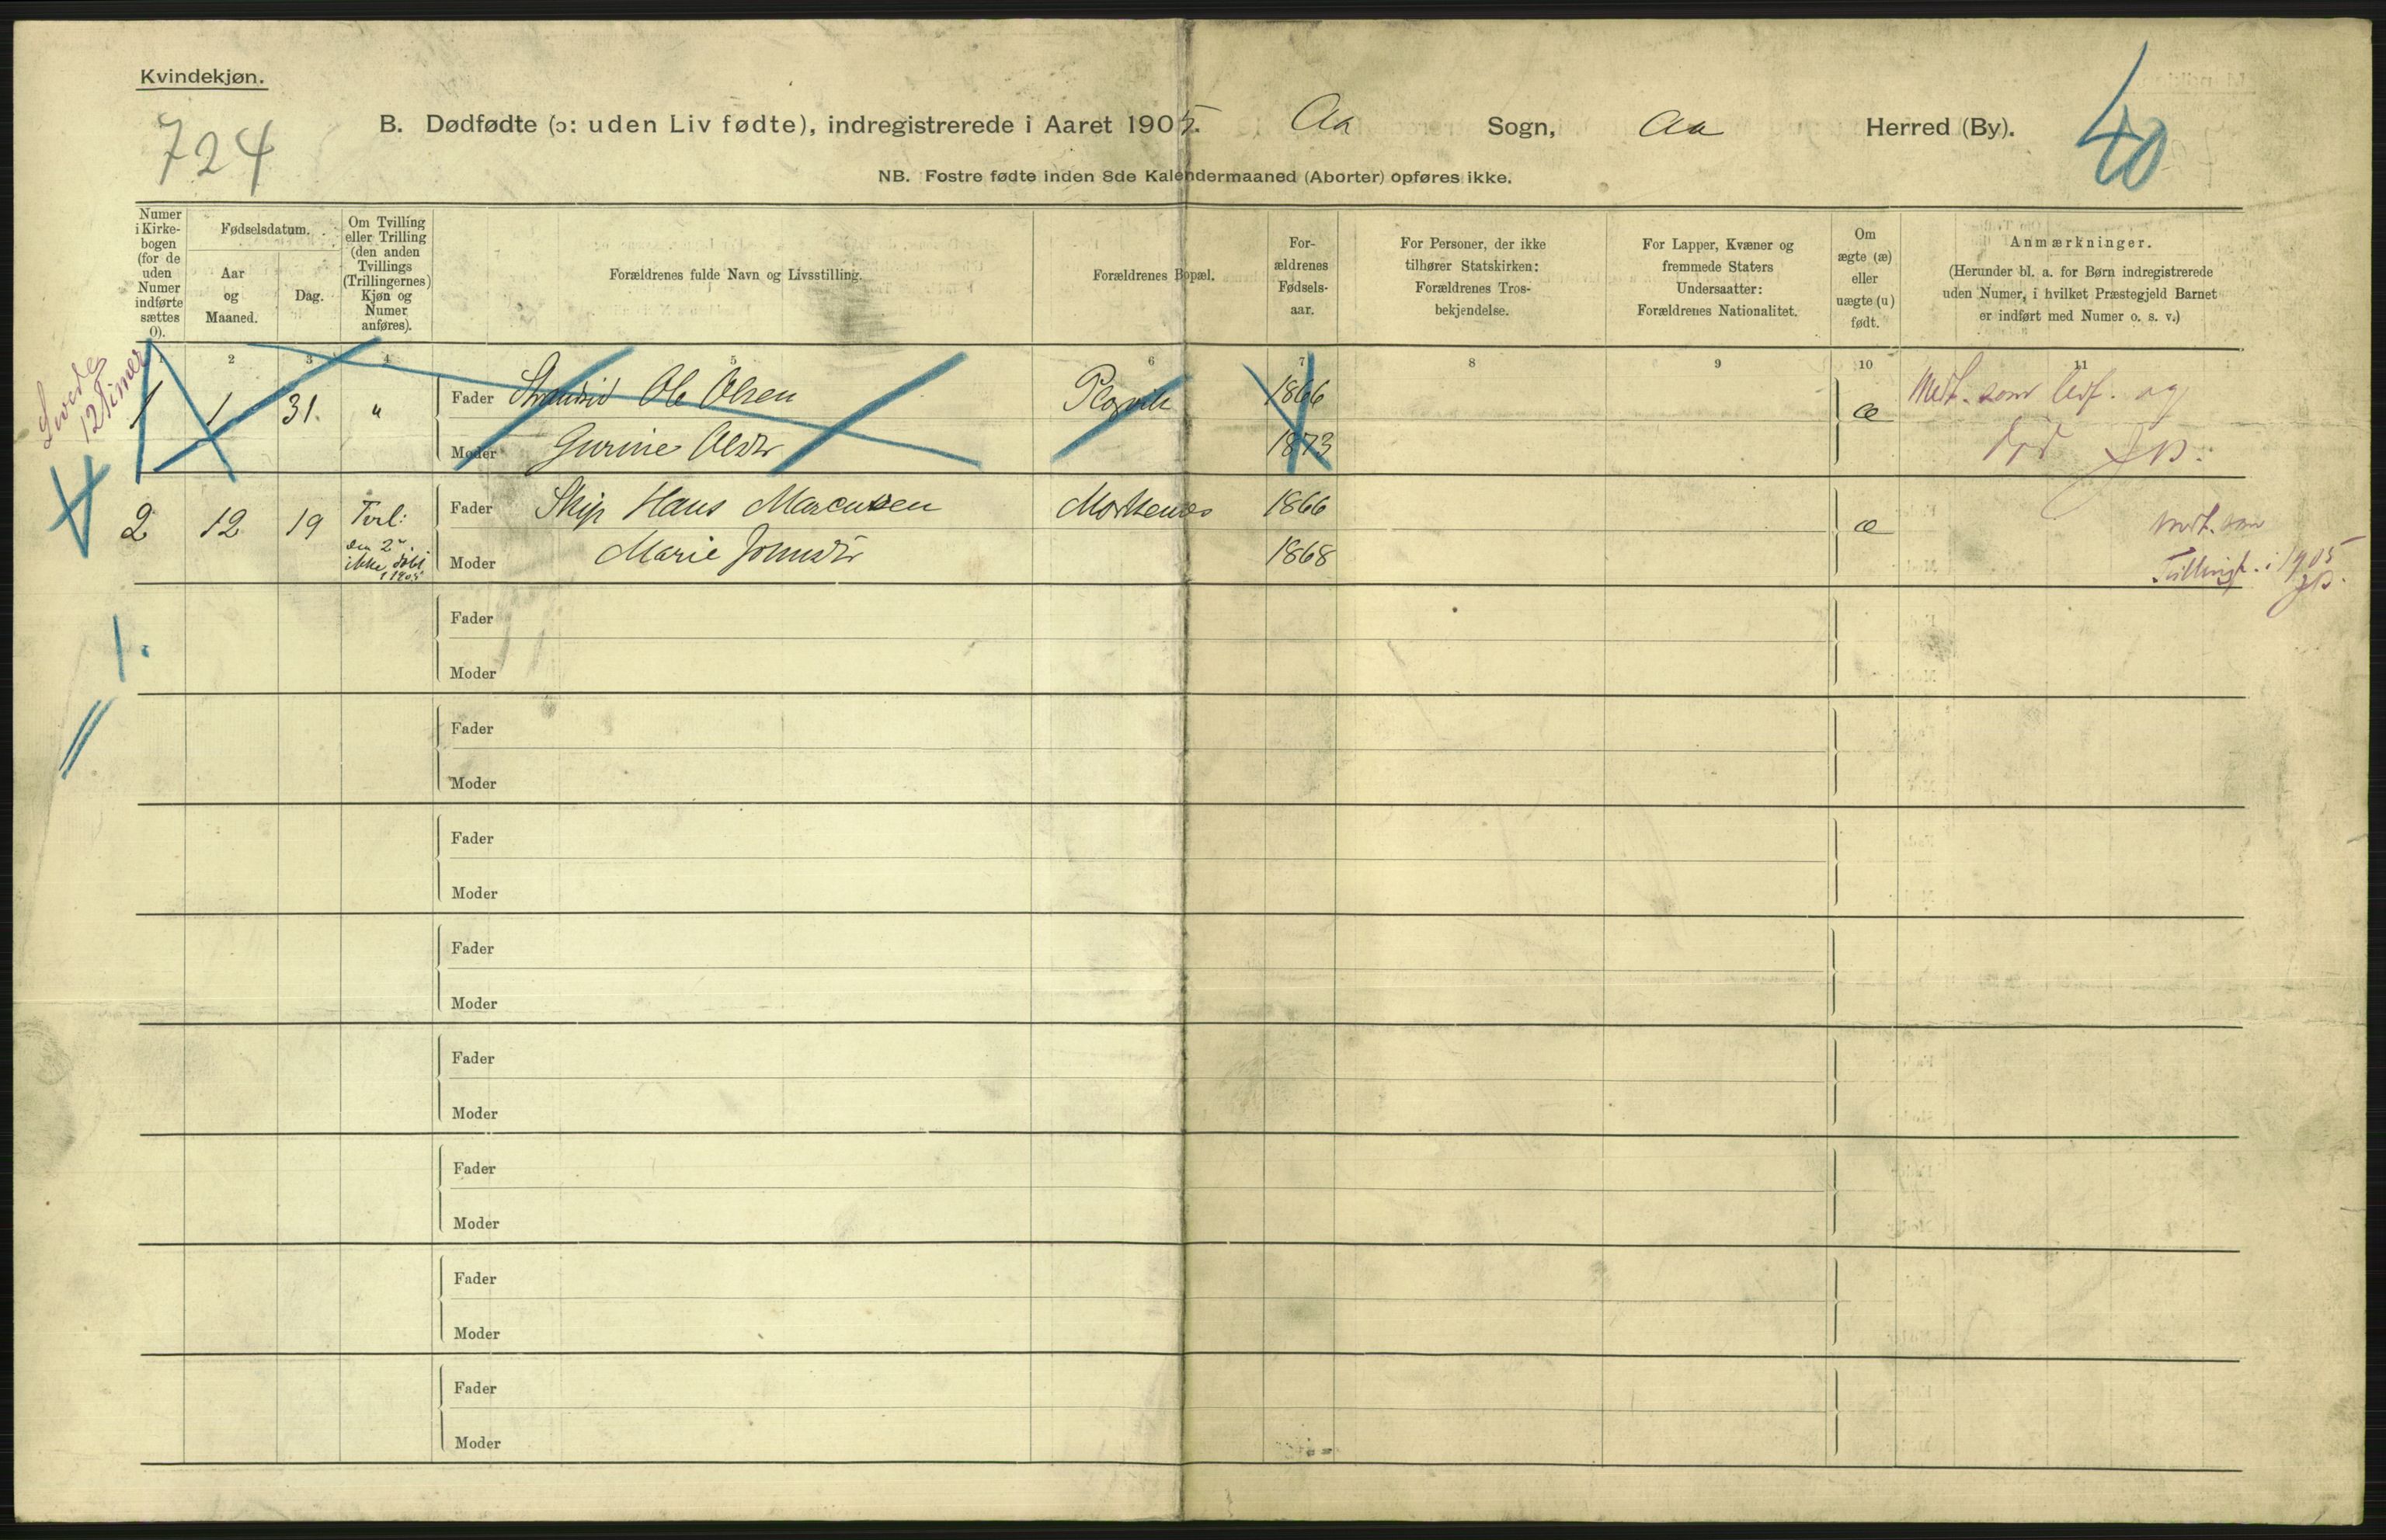 Kvindekjøn.
724
B. Dødfødte (ɔ: uden Liv fødte), indregistrerede i Aaret 1905. Aa Sogn, Aa Herred (By).
40
NB. Fostre fødte inden 8de Kalendermaaned (Aborter) opføres ikke.
Numer
i Kirke-
bogen
(for de
uden
Numer
indførte
sættes
0).
Fødselsdatum.
Aar
og
Maaned.
Dag.
Om Tvilling
eller Trilling
(den anden
Tvillings
(Trillingernes)
Kjøn og
Numer
anføres).
Forældrenes fulde Navn og Livsstilling.
Forældrenes Bopæl.
For-
ældrenes
Fødsels-
aar.
For Personer, der ikke
tilhører Statskirken:
Forældrenes Tros-
bekjendelse.
For Lapper, Kvæner og
fremmede Staters
Undersaatter:
Forældrenes Nationalitet.
Om
ægte (æ)
eller
uægte (u)
født.
Anmærkninger.
(Herunder bl. a. for Børn indregistrerede
uden Numer, i hvilket Præstegjeld Barnet
er indført med Numer o. s. v.)
1 2 3 4 5 6 7 8 9 10 11
12 Timer
1 1 31. "
Fader Ole Olsen 1866
Moder Gurine Olsdr 1873
æ
som og
2 12 19 Tvil:
den 2
ikke
1905
Fader Skip Hans Marcussen 1866
Moder Marie 1868
æ
som
i 1905
1.
Fader
Moder
Fader
Moder
Fader
Moder
Fader
Moder
Fader
Moder
Fader
Moder
Fader
Moder
Fader
Moder